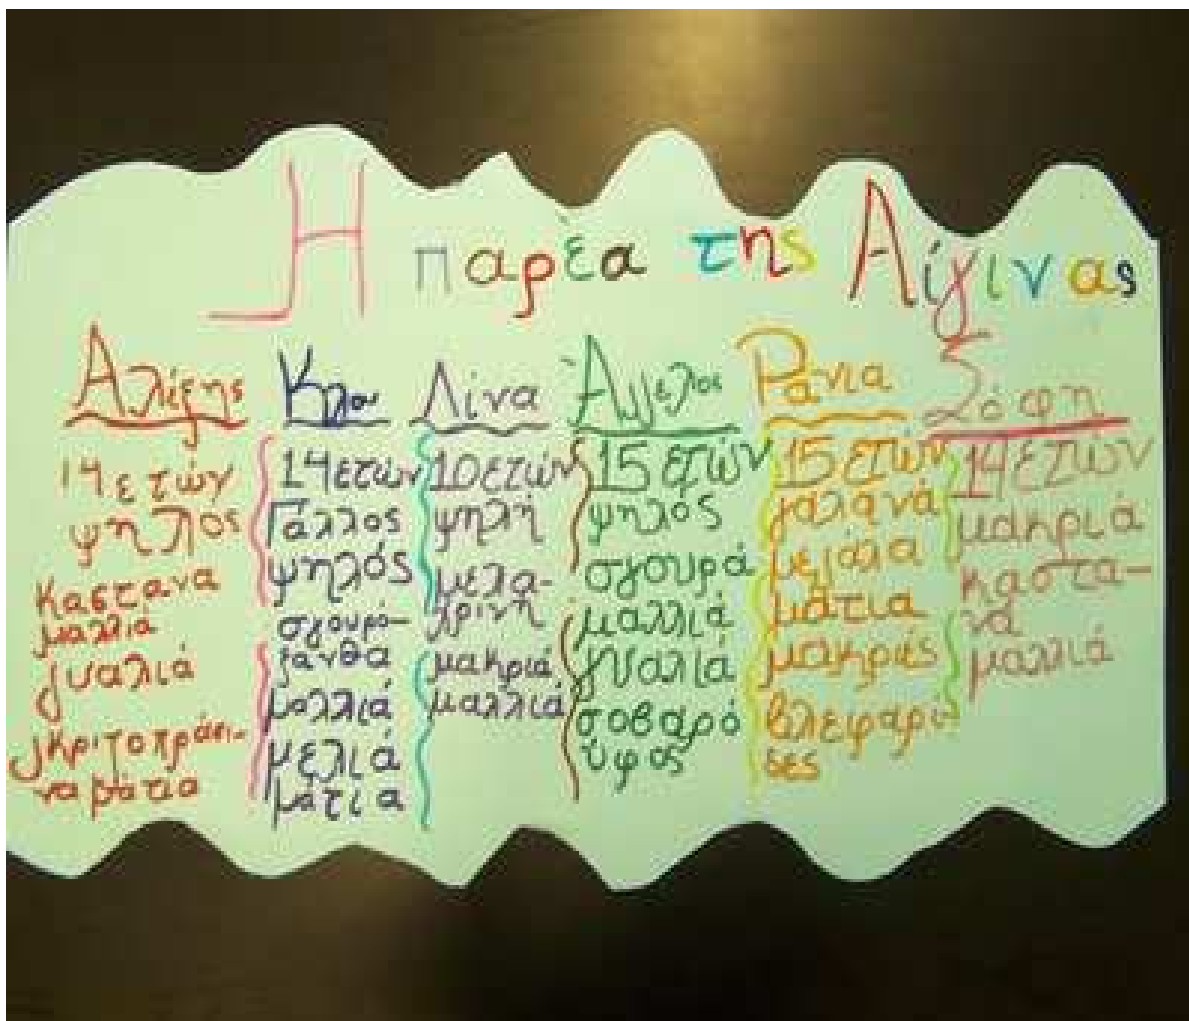 Η παρέα της Αίγινας
Αλέξης
14 ετών
ψηλος
καστανα
μαλλιά
γυαλιά
γκριζοπράσι-
να μάτια
Κλου
14 ετών
Γάλλος
ψηλός
σγουρό-
ξανθα
μαλλιά
μελιά
μάτια
Λίνα
10 ετών
ψηλή
μελα-
χρινή
μακριά
μαλλιά
Άγγελος
15 ετών
ψηλός
σγουρά
μαλλιά
γυαλιά
σοβαρό
ύφος
Ράνια
15 ετών
γαλανά
μεγάλα
μάτια
μακριές
βλεφαρί-
δες
Σόφη
14 ετών
μακριά
καστα-
να
μαλλιά